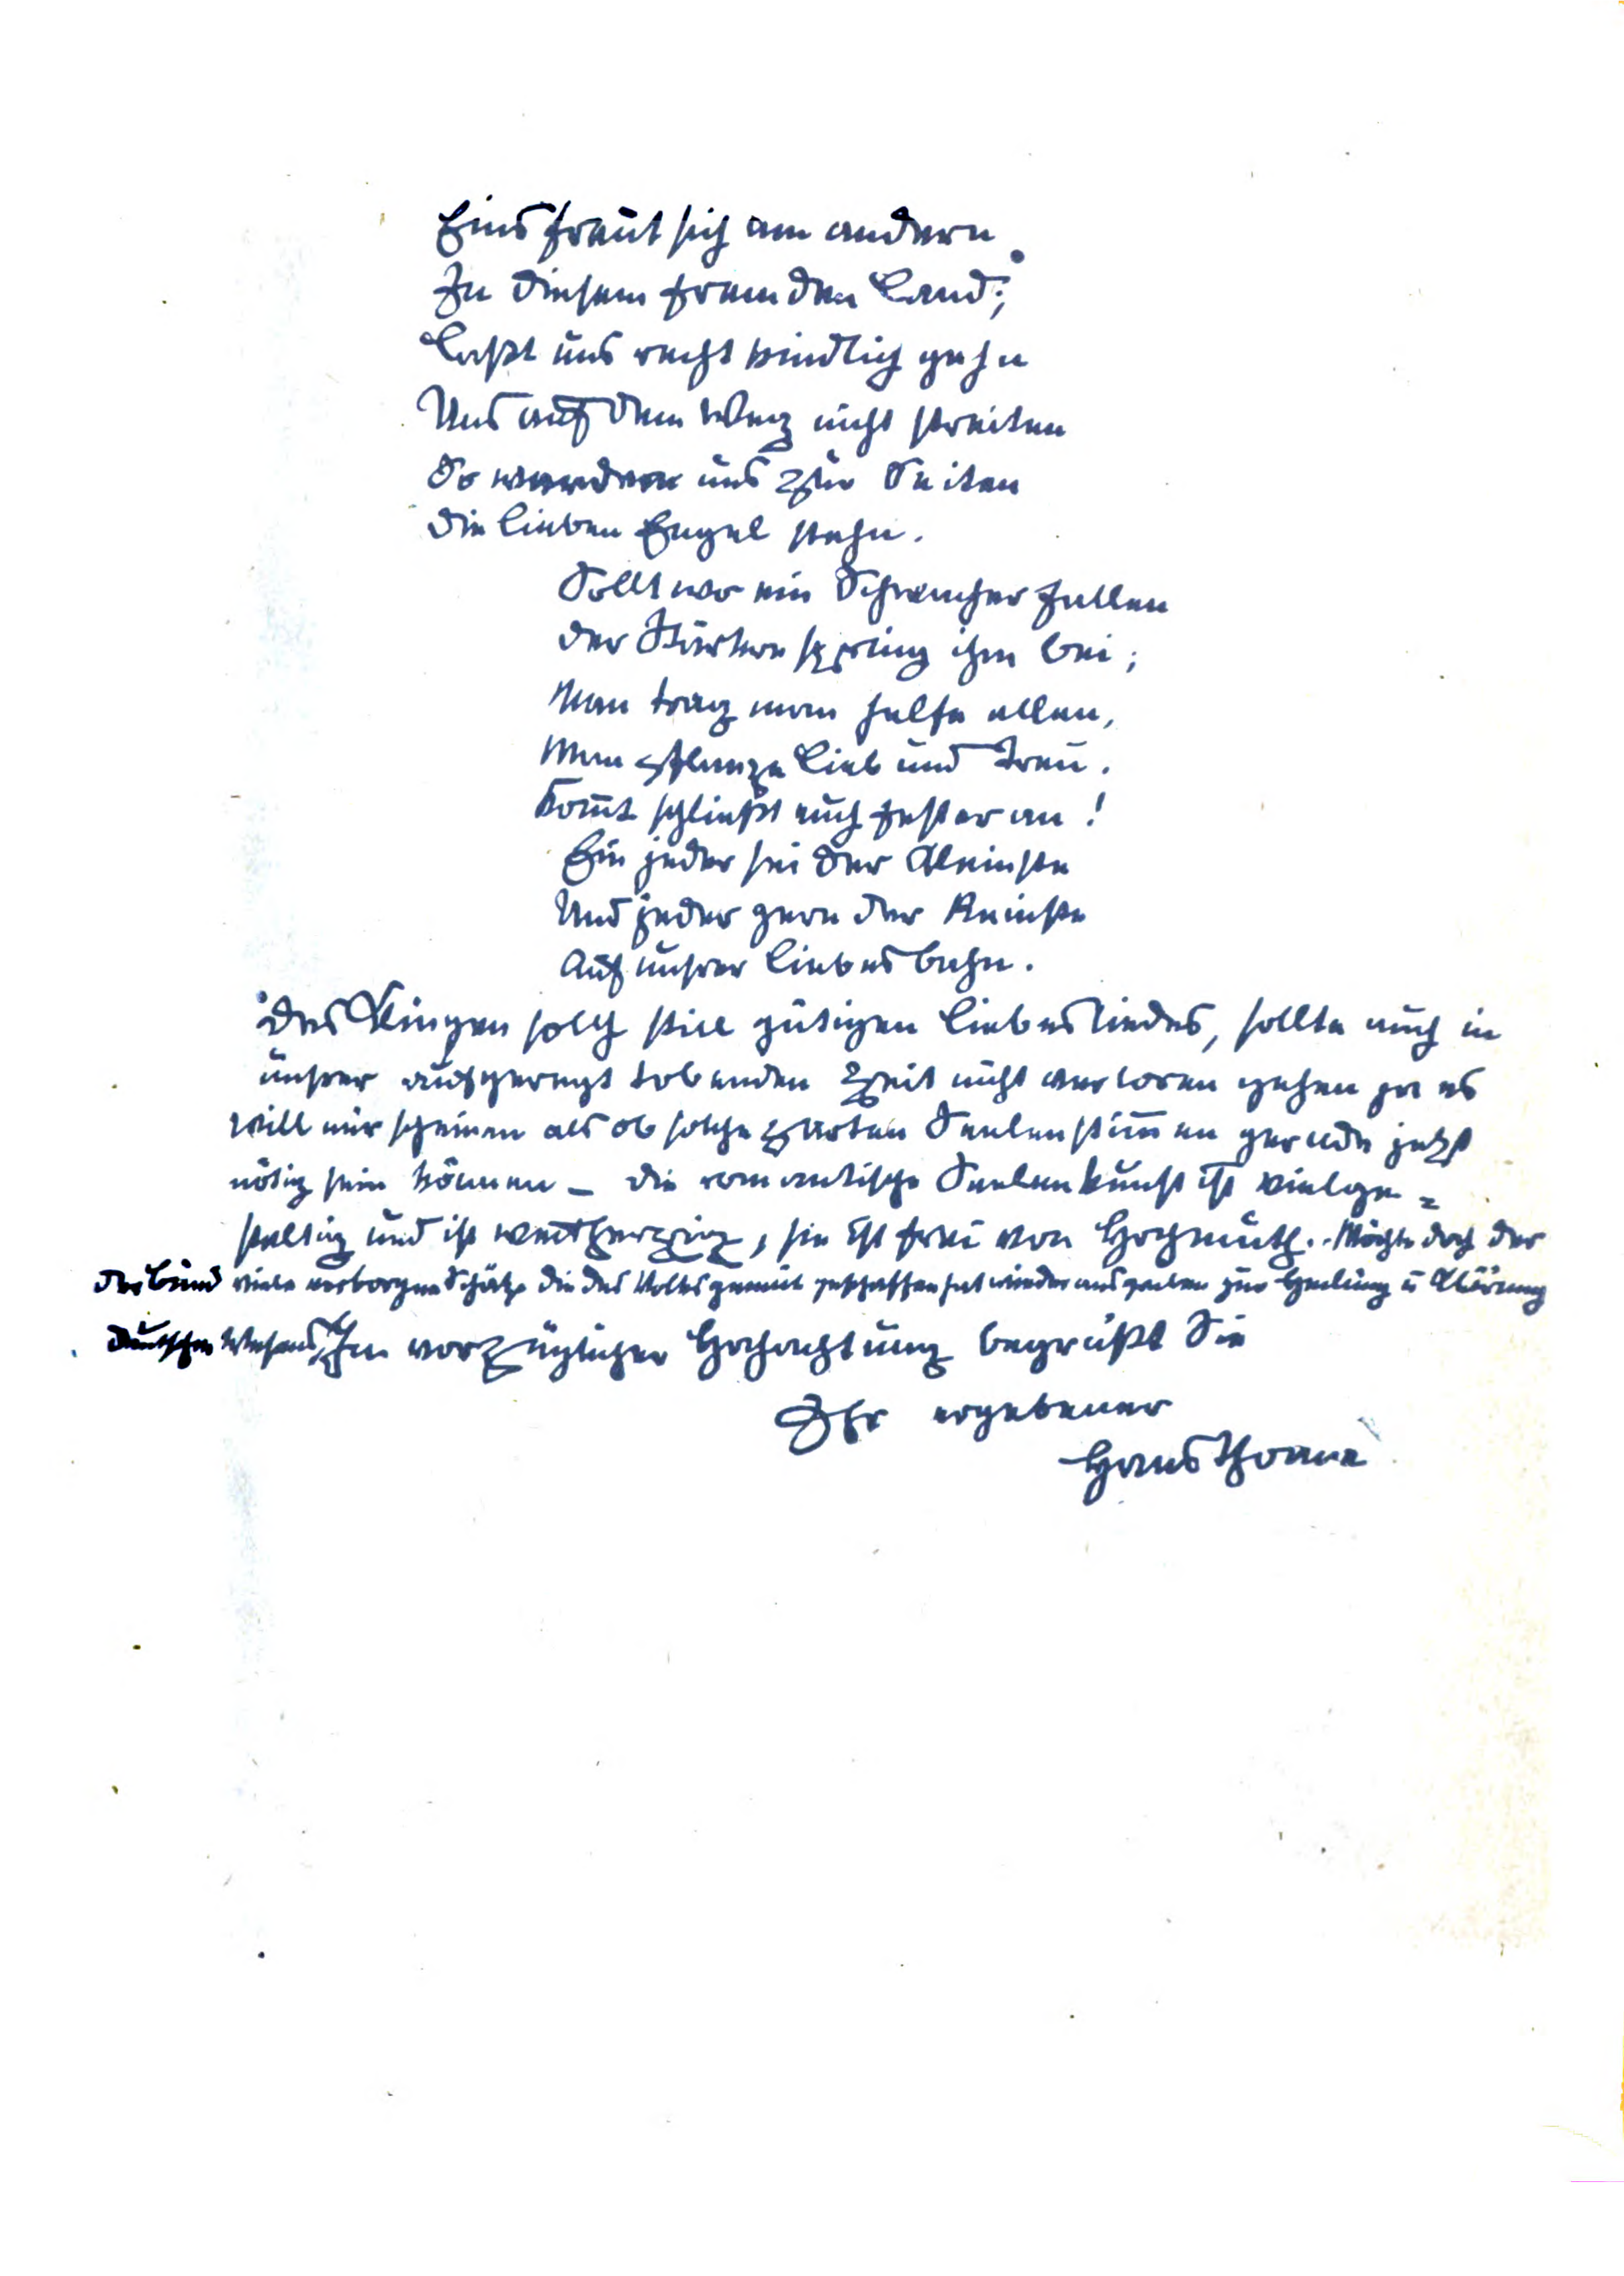 Eins freut sich am andern
In diesem fremden Land;
Laßt uns recht kindlich gehn
Uns auf dem Weg nicht streiten
So werden uns zur Seiten
die lieben Engel stehn.
Sollt wo ein Schwacher fallen
der Stärkere spring ihm bei;
Man trag man helfe allen,
Man pflanze Lieb und Treu.
Komt schließt euch fester an!
Ein jeder sei der Kleinste
Und jeder gern der Reinste
Auf unsrer Liebesbahn.
Das Klingen solch still gütigen Liebesliedes, sollte auch in
unsrer aufgeregt tobenden Zeit nicht verloren gehen ja es
will mir scheinen als ob solche zarten Seelenstimen gerade jetzt
nötig sein können – die romantische Seelenkunst ist vielge=
staltig und ist weitherzig, sie ist frei von Hochmuth. Möchte doch der
der Bund viele verborgne Schätze die das Volksgemüt geschaffen hat wieder ausgraben zur Heilung u Klärung
deutschen Wesens, In vorzüglicher Hochachtung begrüßt Sie
Ihr ergebener
Hans Thoma